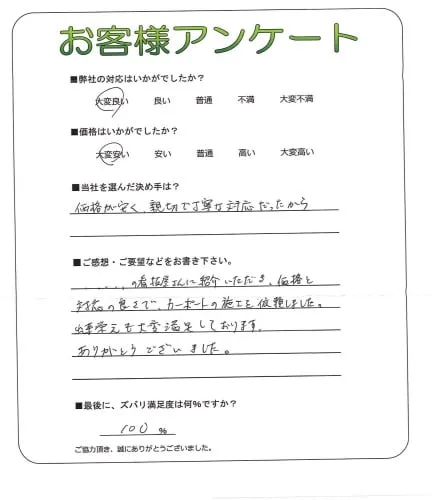 お客様アンケート
■弊社の対応はいかがでしたか？
大変良い 良い 普通 不満 大変不満
■価格はいかがでしたか？
大変安い 安い 普通 高い 大変高い
■当社を選んだ決め手は？
価格が安く、親切で丁寧な対応だったから
■ご感想・ご要望などをお書き下さい。
の看板屋さんに紹介いただき、価格と
対応の良さで、カーポートの施工を依頼しました。
出来栄えも大変満足しております。
ありがとうございました。
■最後に、ズバリ満足度は何%ですか？
100 %
ご協力頂き、誠にありがとうございました。